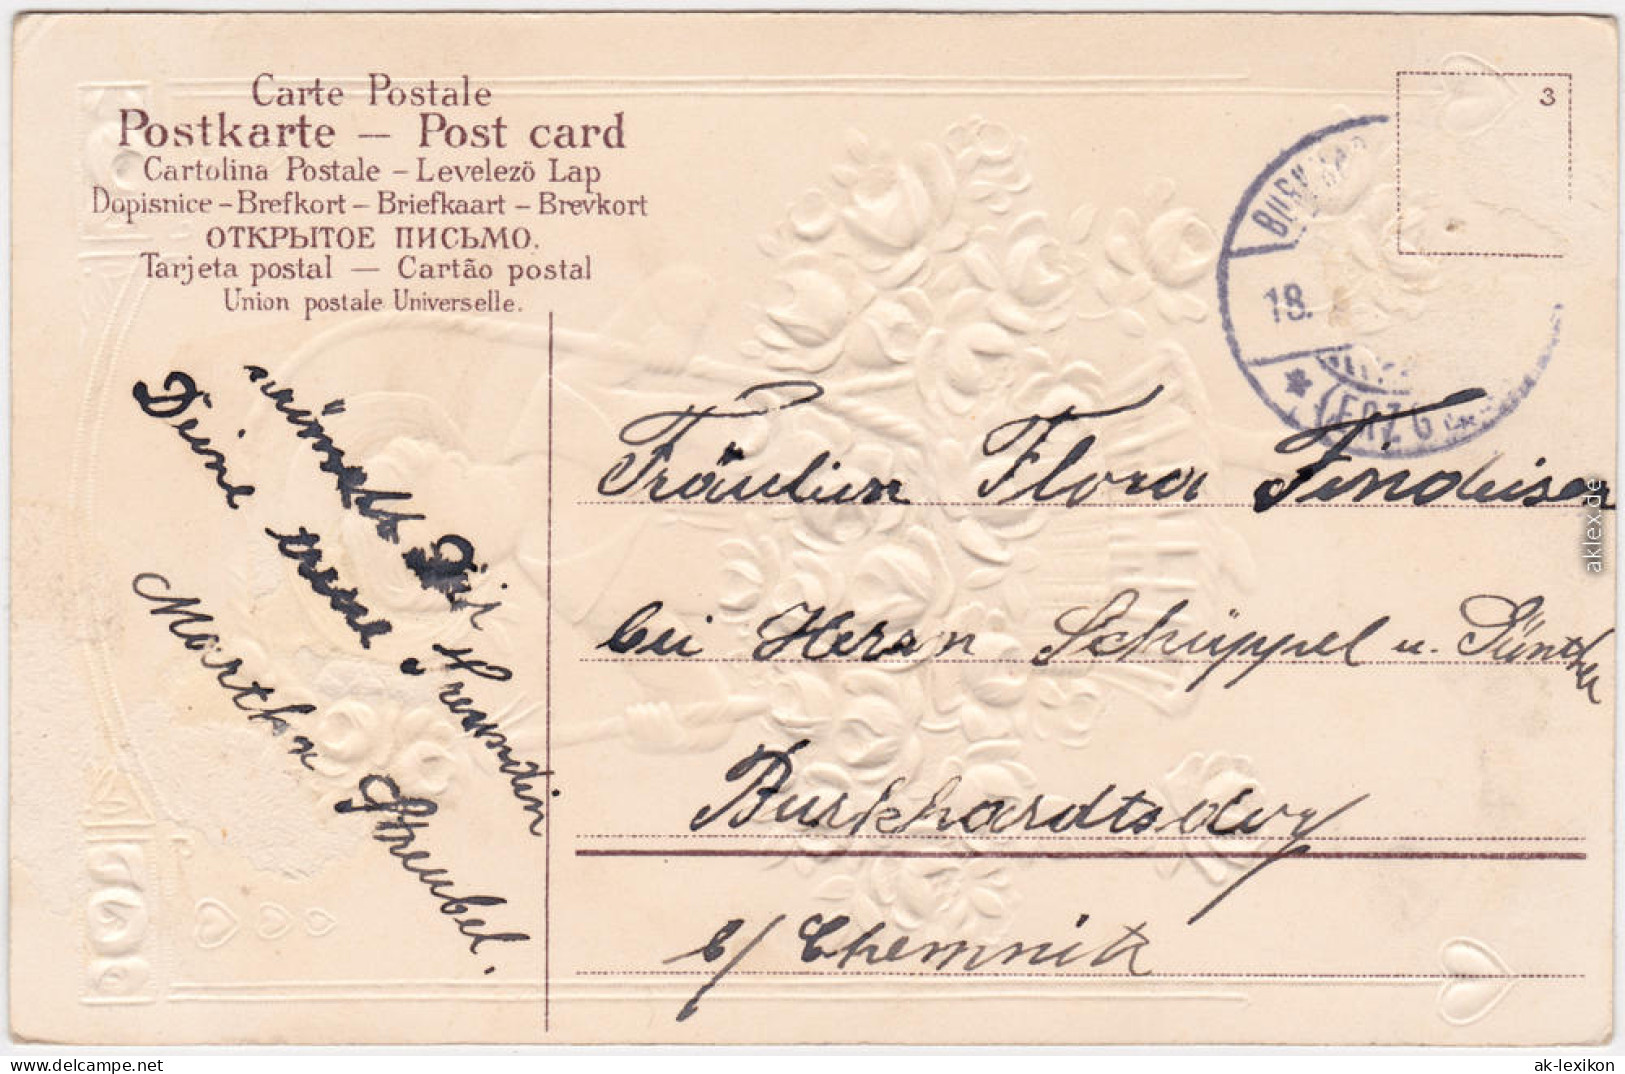 Carte Postale
Postkarte — Post card
Cartolina Postale – Levelezö Lap
Dopisnice – Brefkort – Briefkaart – Brevkort
ОТКРЫТОЕ ПИСЬМО.
Tarjeta postal — Cartão postal
Union postale Universelle.
3
18.
(ERZG
wünscht Dir
Deine treue Freundin
Martha Streubel.
Fräulein Flora Findeisen
bei Herrn Schüppel u. Günther
Burkhardtsdorf
b/ Chemnitz
aklex.de
delcampe.net
ak-lexikon